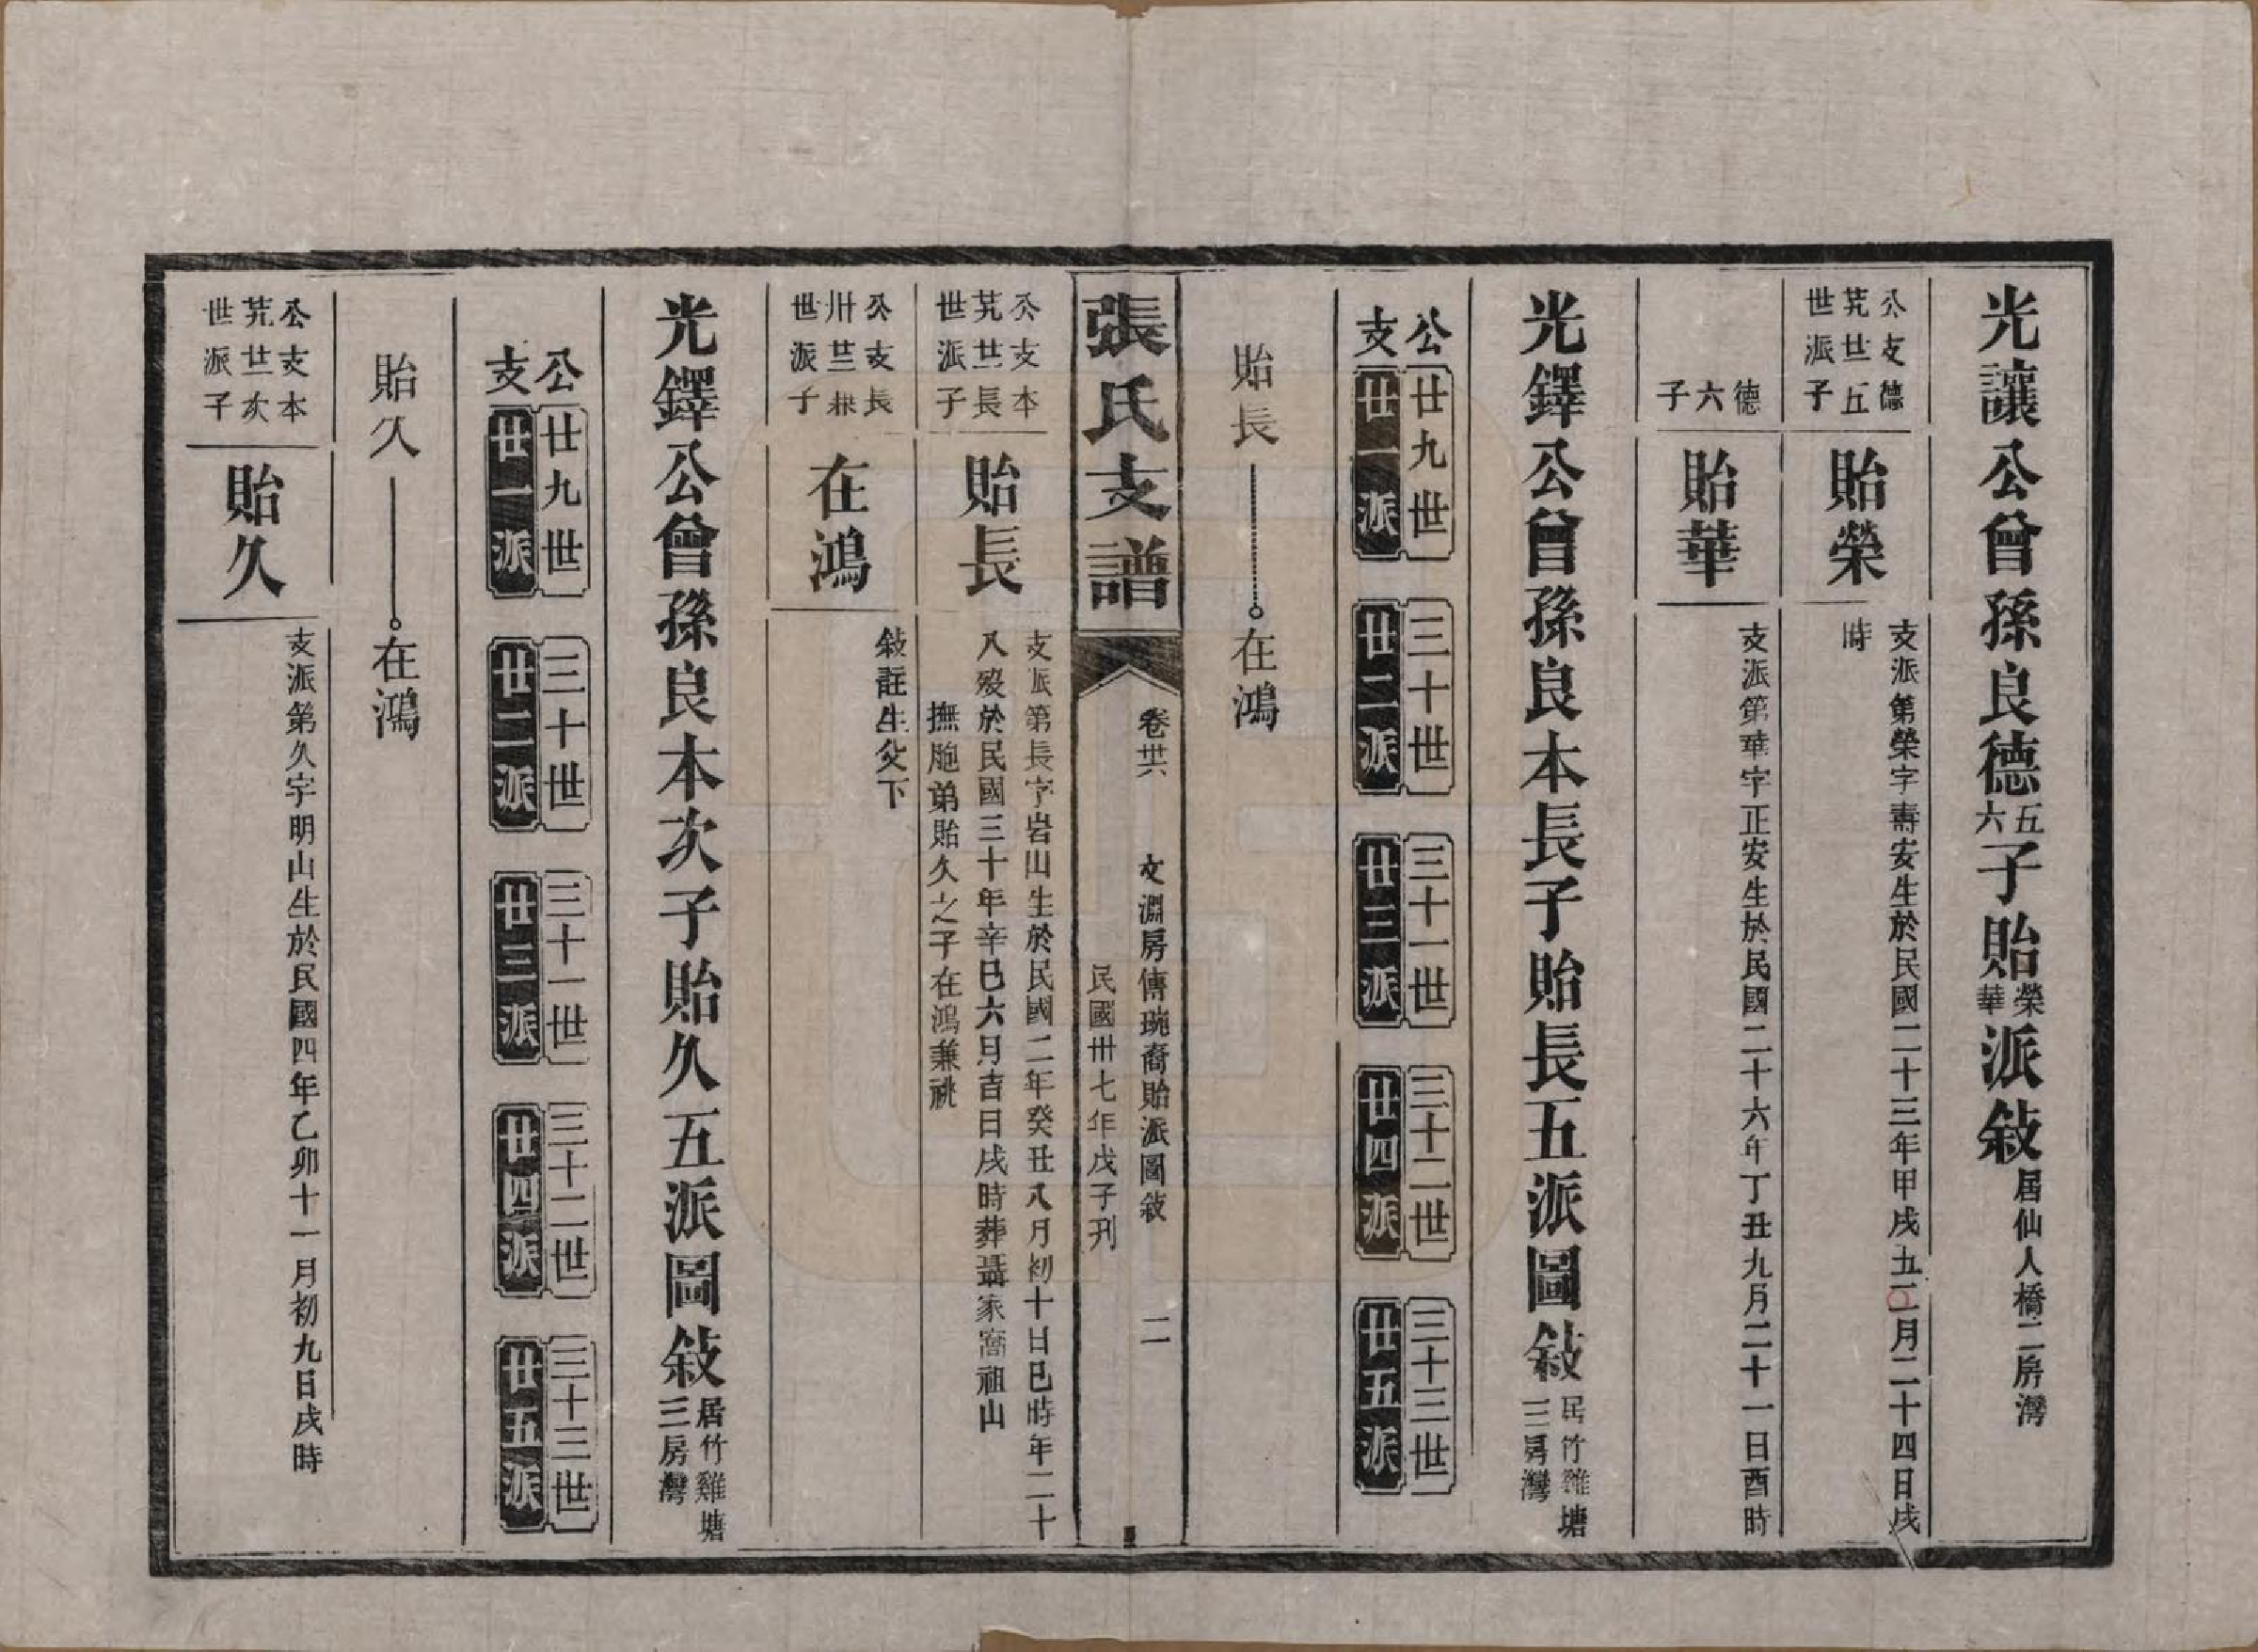 光讓公曾孫良德五六子貽榮華派敍居仙人橋二房灣
公支德
芄世廿五
世派子
貽榮
支派第榮字壽安生於民國二十三年甲戌五二月二十四日戌
時
德
六
子
貽華
支派第華字正安生於民國二十六年丁丑九月二十一日酉時
光鐸公曾孫良本長子貽長五派圖敍居竹雞塘三房灣
公支
廿九世 廿一派
三十世 廿二派
三十一世 廿三派
三十二世 廿四派
三十三世 廿五派
貽長
在鴻
張氏支譜
卷卄六
文淵房傳琬裔貽派圖敍
二
民國卅七年戊子刋
公支本
芄廿長
世派子
貽長
支派第長字岩山生於民國二年癸丑八月初十日巳時年二十
八歿於民國三十年辛巳六月吉日戌時葬聶家窩祖山
撫胞弟貽久之子在鴻兼祧
公支長
世派子
在鴻
敍註生父下
光鐸公曾孫良本次子貽久五派圖敍居竹雞塘三房灣
公支
廿九世 廿一派
三十世 廿二派
三十一世 廿三派
三十二世 廿四派
三十三世 廿五派
貽久
在鴻
公支本
芄世次
世派子
貽久
支派第久字明山生於民國四年乙卯十一月初九日戌時